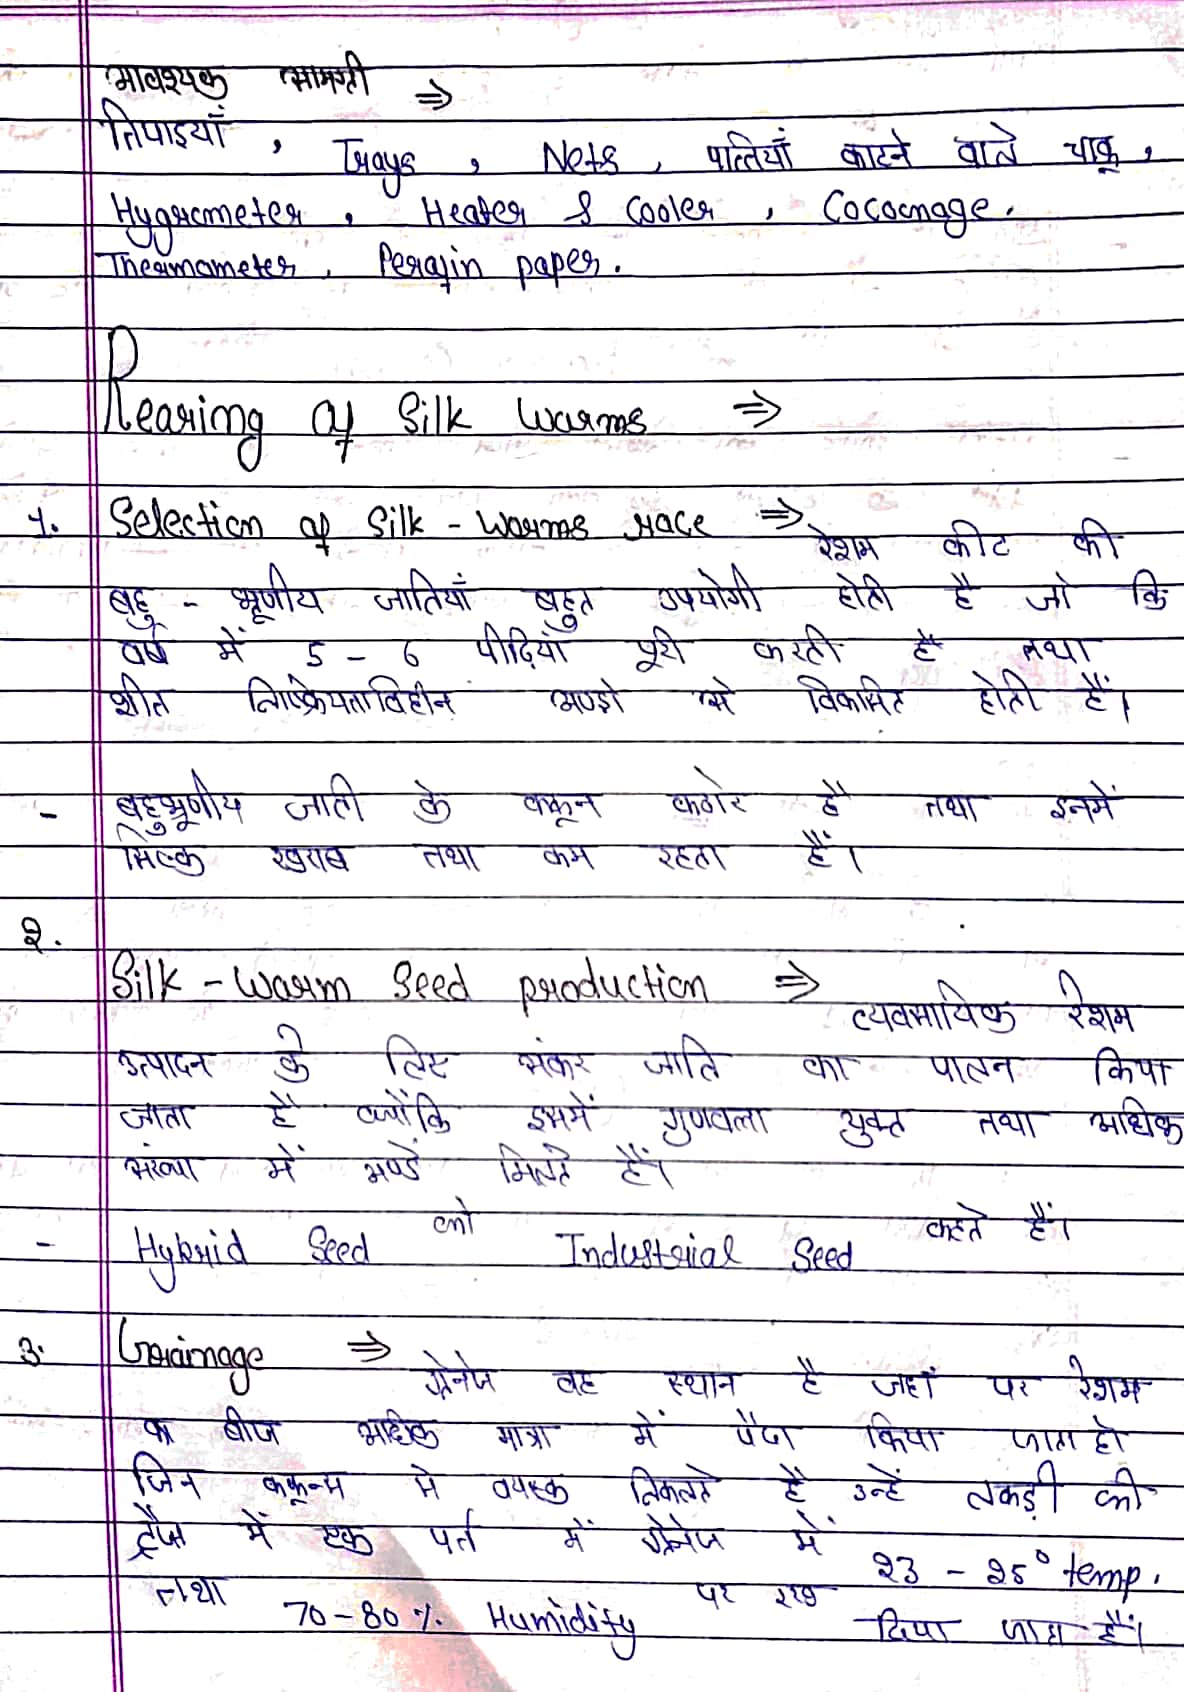 आवश्यक सामग्री ⇒
तिपाइयाँ, Trays, Nets, पत्तियाँ काटने वाले चाकू,
Hygrometer, Heater & Cooler, Cocoonage.
Thermometer, Perafin paper.
Rearing of Silk Warms ⇒
1. Selection of Silk-Warms race ⇒ रेशम कीट की
बहु-भ्रूणीय जातियाँ बहुत उपयोगी होती है जो कि
वर्ष में 5-6 पीढ़ियाँ पूरी करती है तथा
शीत निष्क्रियताविहीन अण्डो से विकसित होती हैं।
- बहुभ्रूणीय जाती के ककून कठोर है तथा इनमें
सिल्क खराब तथा कम रहता हैं।
2. Silk-Warm Seed production ⇒ व्यवसायिक रेशम
उत्पादन के लिए संकर जाति का पालन किया
जाता है क्योंकि इसमें गुणवत्ता युक्त तथा अधिक
संख्या में अण्डे मिलते हैं।
- Hybrid Seed को Industrial Seed कहते हैं।
3. Grainage ⇒ ग्रेनेज वह स्थान है जहाँ पर रेशम
का बीज अधिक मात्रा में पैदा किया जाता हो
जिन ककून्स से वयस्क निकलते है उन्हें लकड़ी की
ट्रेज में एक पर्त में ग्रेनेज में 23-25° temp.
तथा 70-80% Humidity पर रख दिया जाता हैं।